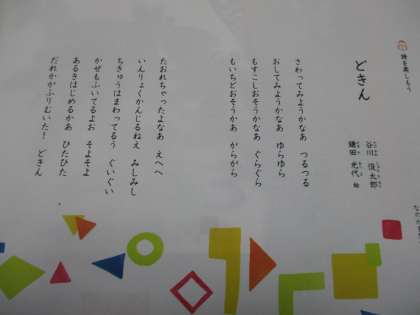 詩を楽しもう
どきん
谷川 俊太郎
鎌田 光代 絵
さわってみようかなあ つるつる
おしてみようかなあ ゆらゆら
もすこしおそうかなあ ぐらぐら
もいちどおそうかあ がらがら
たおれちゃったよなあ えへへ
いんりょくかんじるねえ みしみし
ちきゅうはまわってるう ぐいぐい
かぜもふいてるよお そよそよ
あるきはじめるかあ ひたひた
だれかがふりむいた! どきん